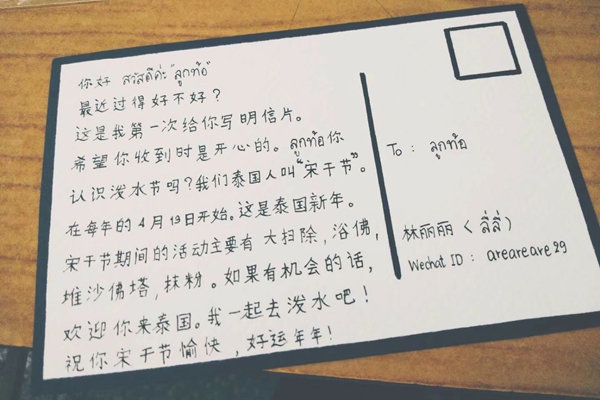 你好 สวัสดีค่ะ"ลูกท้อ"
最近过得好不好？
这是我第一次给你写明信片。
希望你收到时是开心的。ลูกท้อ你
认识泼水节吗？我们泰国人叫“宋干节”。
在每年的 4月13日开始。这是泰国新年。
宋干节期间的活动主要有 大扫除，浴佛，
堆沙佛塔，抹粉。如果有机会的话，
欢迎你来泰国。我一起去泼水吧！
祝你宋干节愉快，好运年年！
To : ลูกท้อ
林丽丽 < ลี่ลี่ )
Wechat ID : areareare29